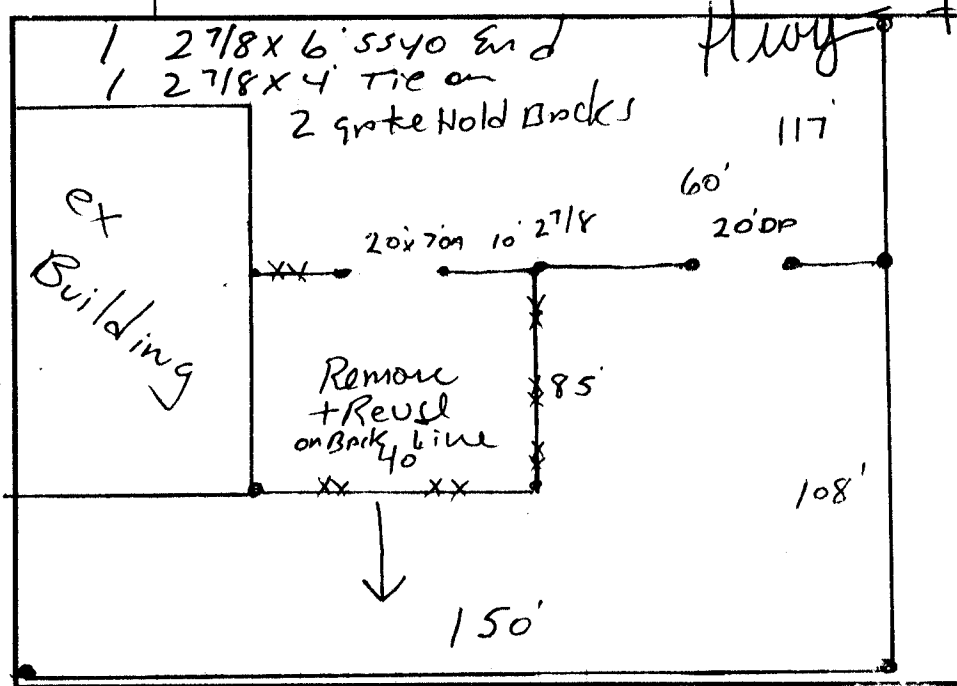 1 2 7/8 x 6' SS40 End
Hwy
1 2 7/8 x 4' Tie on
2 gate Hold Backs
117'
ex
Building
60'
20x7 10' 2 7/8
20'DP
Remove
+Reuse
on Back Line
40
85'
108'
150'